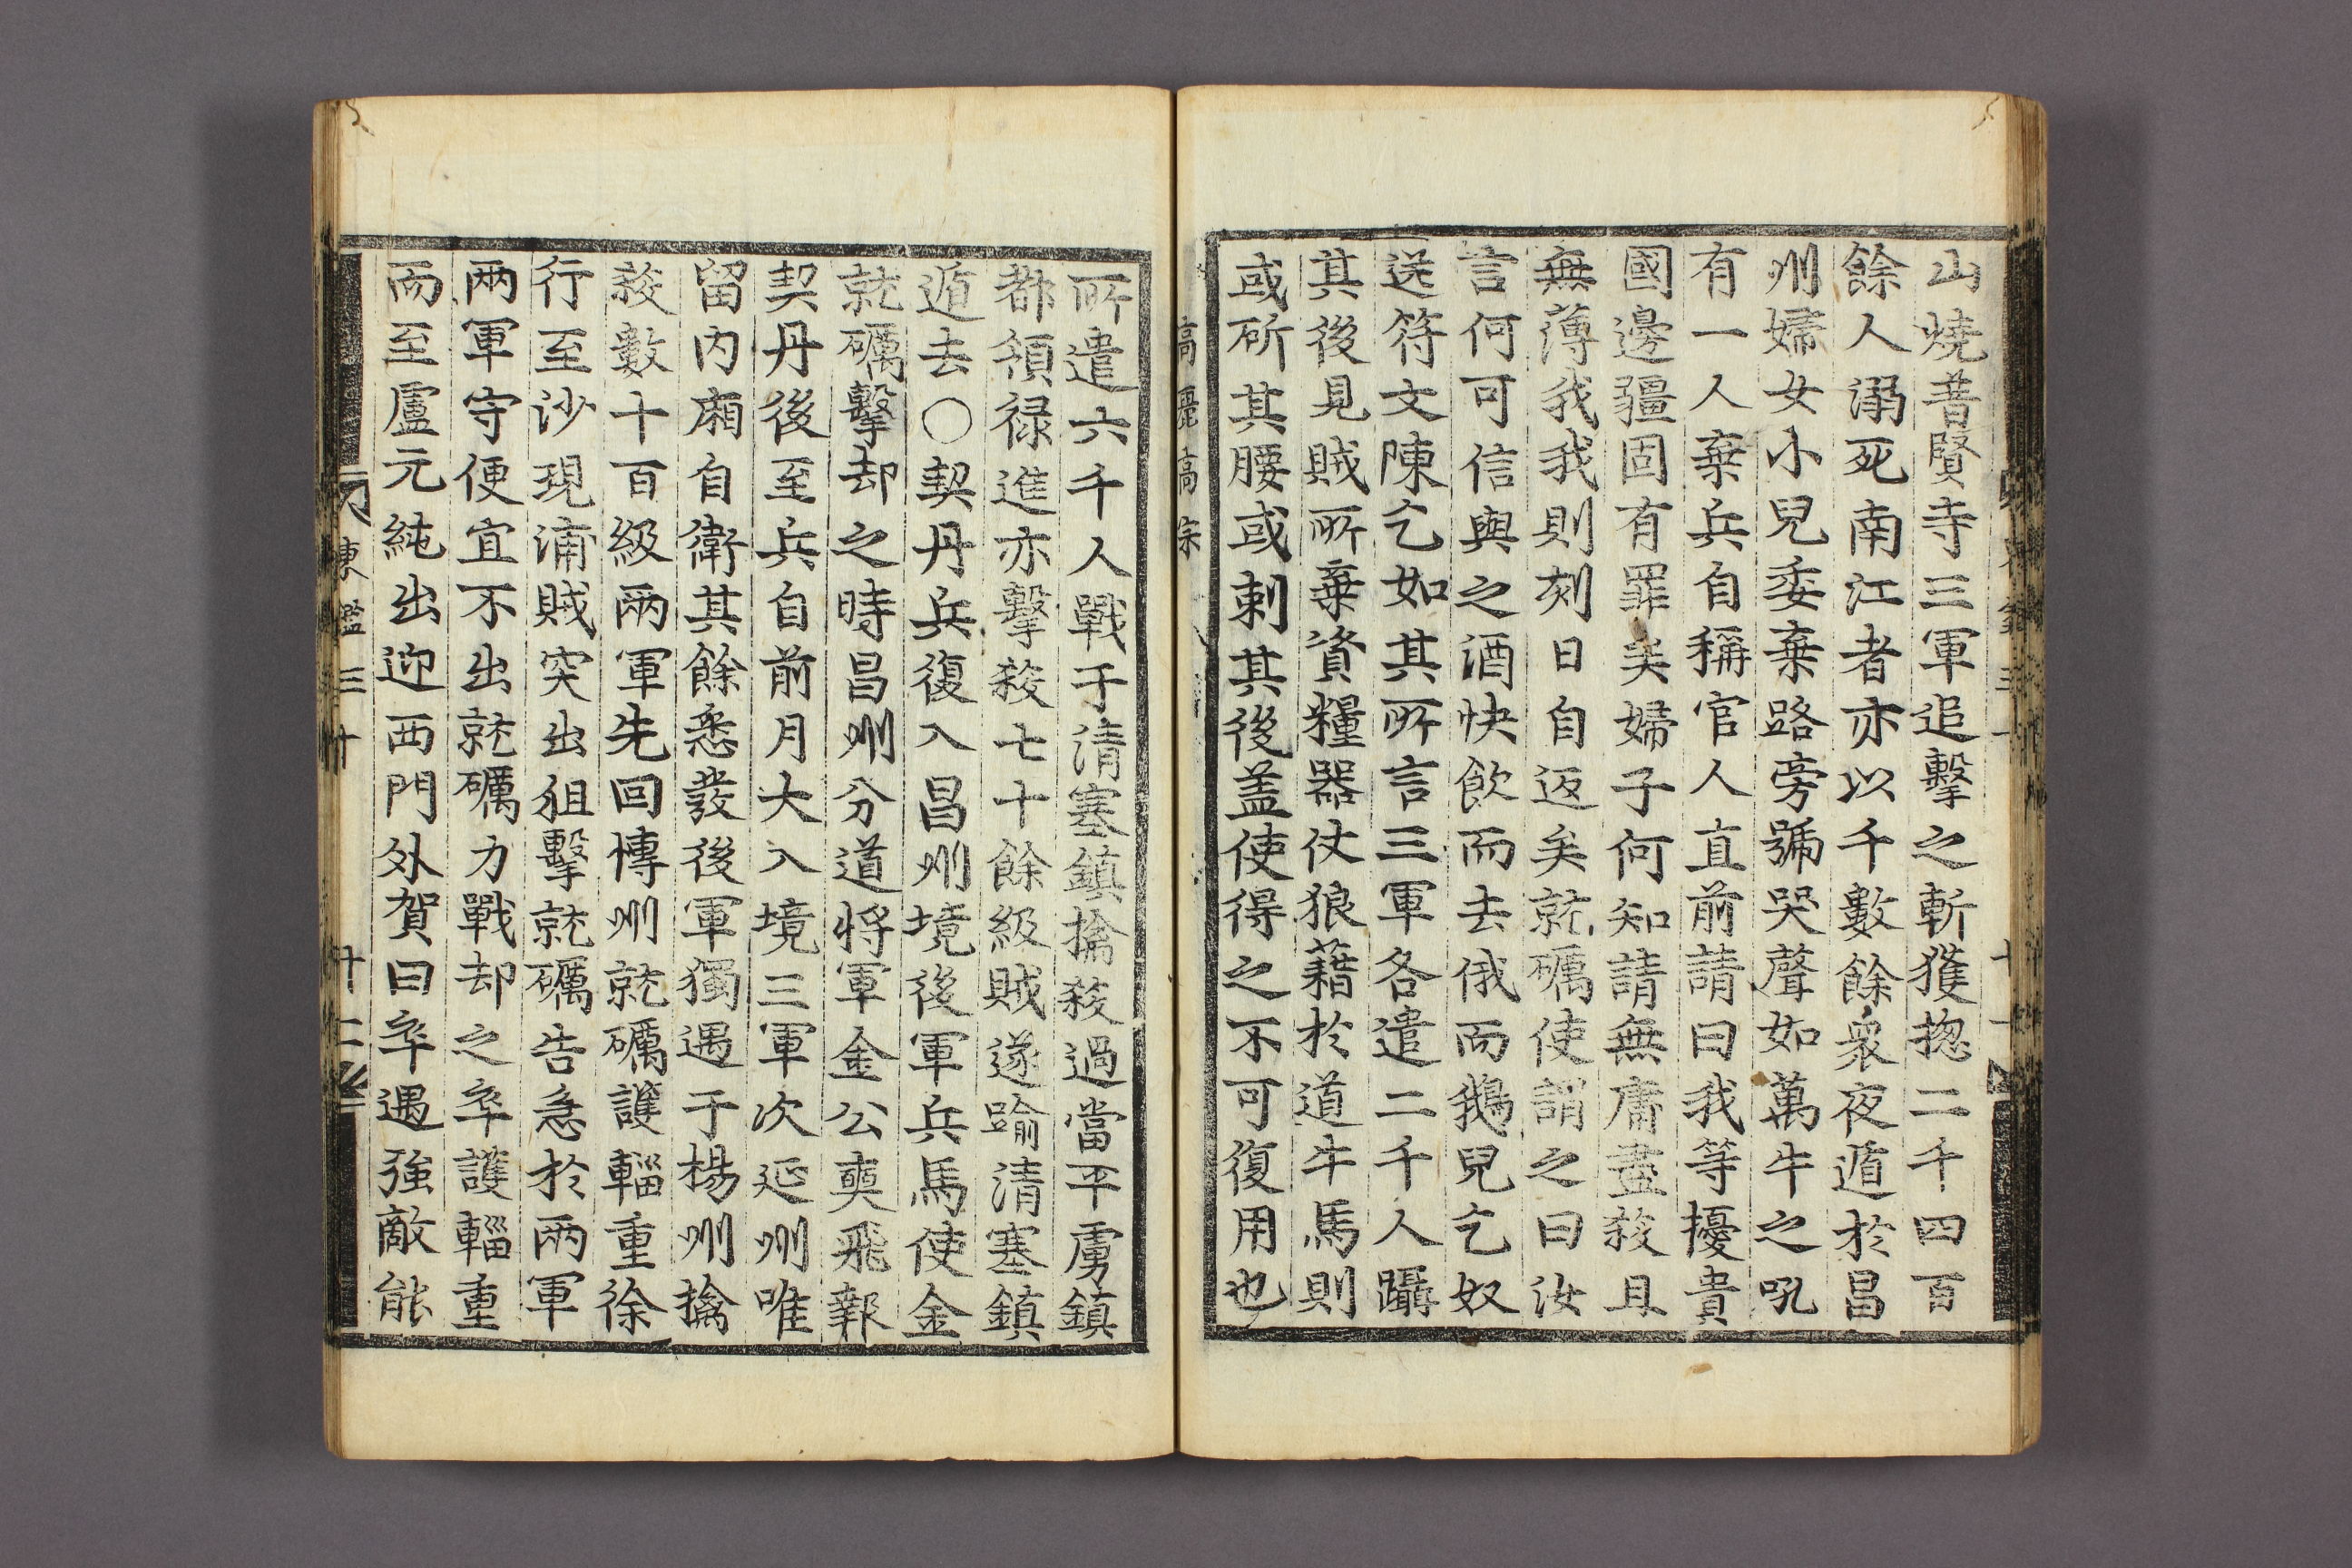 山燒普賢寺三軍追擊之斬獲揔二千四百
餘人溺死南江者亦以千數餘衆夜遁於昌
州婦女小兒委棄路旁號哭聲如萬牛之吼
有一人棄兵自稱官人直前請曰我等擾貴
國邊疆固有罪矣婦子何知請無庸盡殺且
無薄我我則刻日自返矣就礪使謂之曰汝
言何可信與之酒快飮而去俄而鵝兒乞奴
送符文陳乞如其所言三軍各遣二千人躡
其後見賊所棄資糧器仗狼藉於道牛馬則
或斫其腰或刺其後盖使得之不可復用也
高麗高宗
所遣六千人戰于淸塞鎭擒殺過當平虜鎭
都領祿進亦擊殺七十餘級賊遂踰淸塞鎭
遁去〇契丹兵復入昌州境後軍兵馬使金
就礪擊却之時昌州分道將軍金公奭飛報
契丹後至兵自前月大入境三軍次延州唯
留內廂自衛其餘悉發後軍獨遇于楊州擒
殺數十百級兩軍先回博州就礪護輜重徐
行至沙現浦賊突出狙擊就礪告急於兩軍
兩軍守便宜不出就礪力戰却之卒護輜重
而至盧元純出迎西門外賀曰卒遇强敵能
東鑑三十 十二